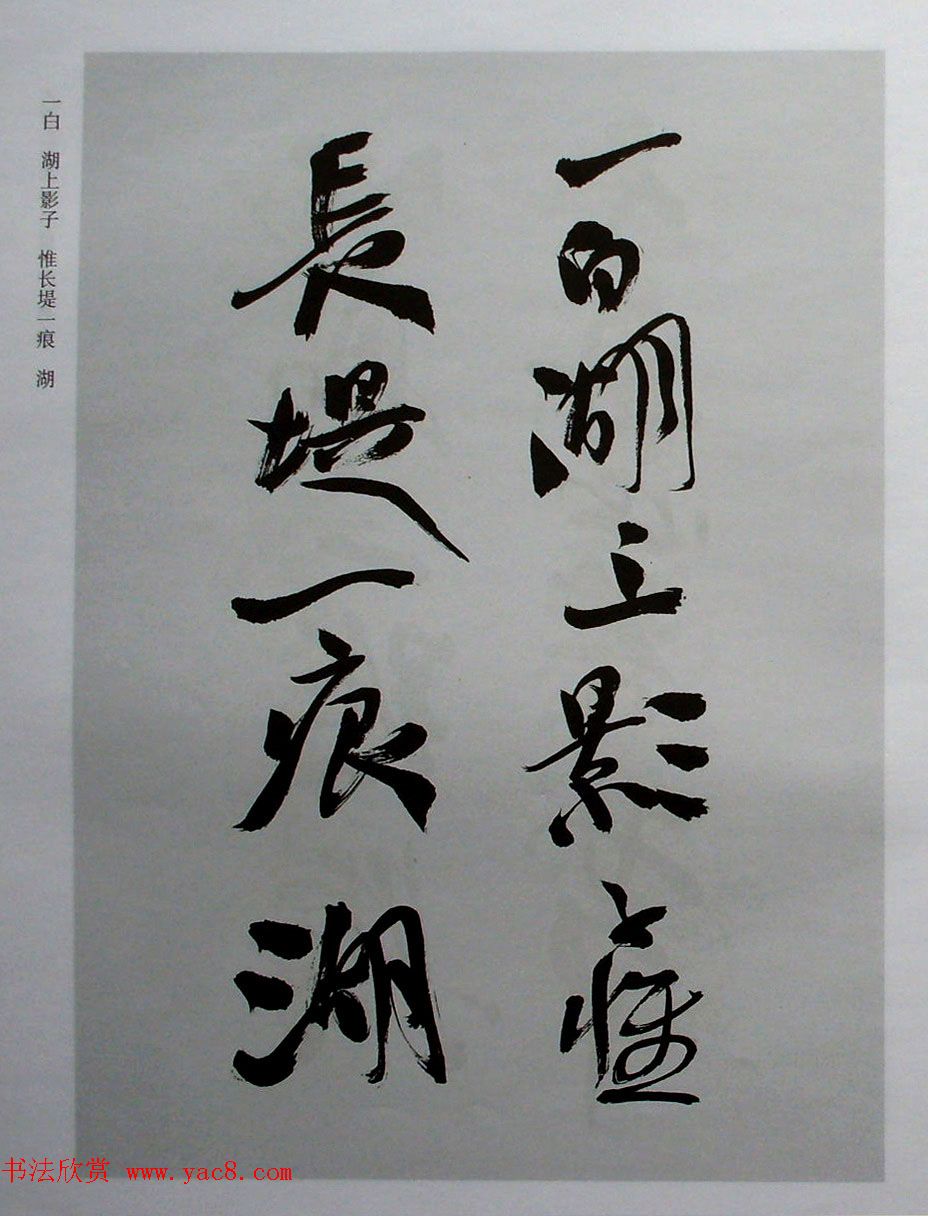 一白湖上影子惟
長堤一痕湖
一白 湖上影子 惟长堤一痕 湖
书法欣赏 www.yac8.com